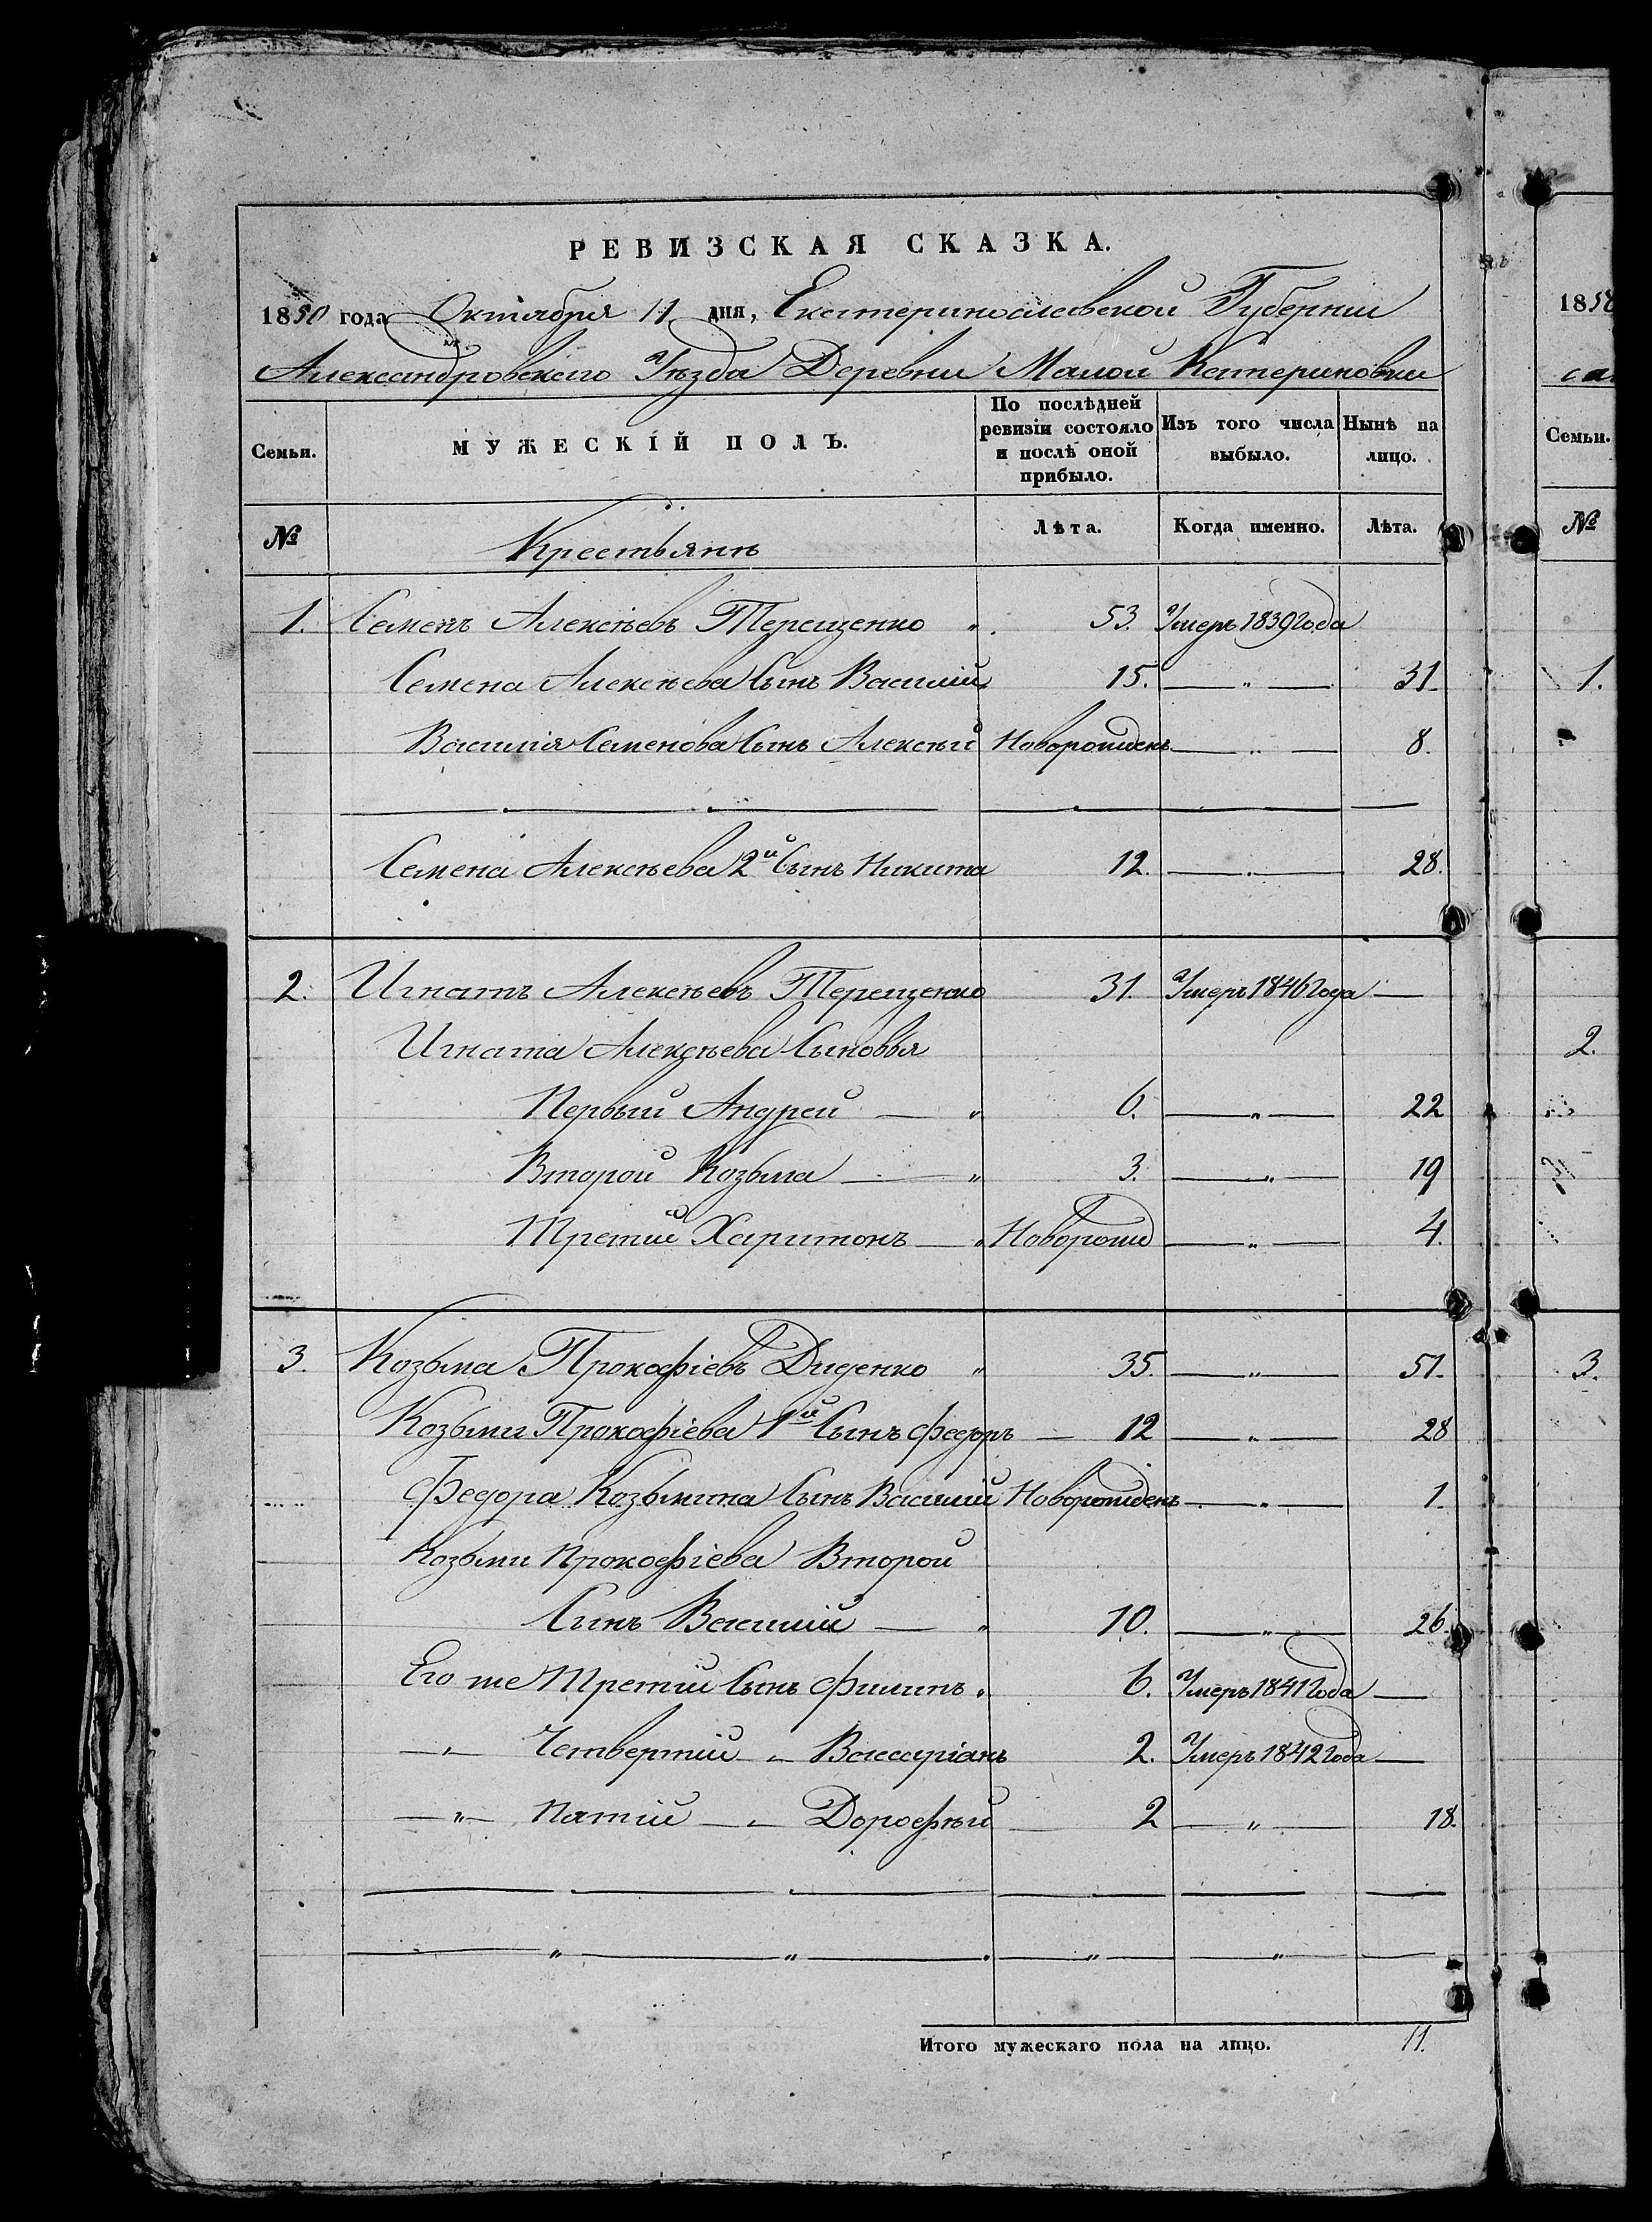 РЕВИЗСКАЯ СКАЗКА.
1850 года Октября 11 дня, Екатеринославской Губерніи
Александровскаго Уѣзда Деревни Малой Катериновки
Семьи. МУЖЕСКІЙ ПОЛЪ. По послѣдней ревизіи состояло и послѣ оной прибыло. Изъ того числа выбыло. Нынѣ на лицо.
№ Крестьянъ Лѣта. Когда именно. Лѣта.
1. Семенъ Алексѣевъ Терещенко " 53. Умеръ 1839 года
Семена Алексѣева Сынъ Василій 15. — " — 31.
Василія Семенова Сынъ Алексѣй Новорожденъ — " — 8.
Семена Алексѣева 2й Сынъ Никита 12. — " — 28.
2. Игнатъ Алексѣевъ Терещенко 31. Умеръ 1846 года —
Игната Алексѣева Сыновья
Первый Андрей — " 6. — " — 22
Второй Козьма — " 3. — " — 19
Третій Харитонъ — " Новорожд — " — 4.
3. Козьма Прокофіевъ Диденко " 35. — " — 51.
Козьмы Прокофіева 1й Сынъ Федоръ — 12 — " — 28
Федора Козьмина Сынъ Василій Новорожденъ — " — 1.
Козьмы Прокофіева Второй
Сынъ Василій — " 10. — " — 26.
Его же Третій Сынъ Филипъ " 6. Умеръ 1841 года —
— " — Четвертій — " — Виссаріонъ 2. Умеръ 1842 года —
— " — Пятій — " — Дорофѣй 2 — " — 18.
Итого мужескаго пола на лицо. 11.
1850
Семьи.
№
1.
2.
3.